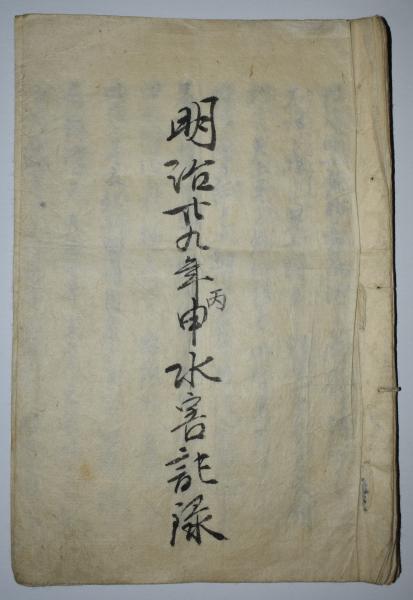 明治廿九年丙申水害記録